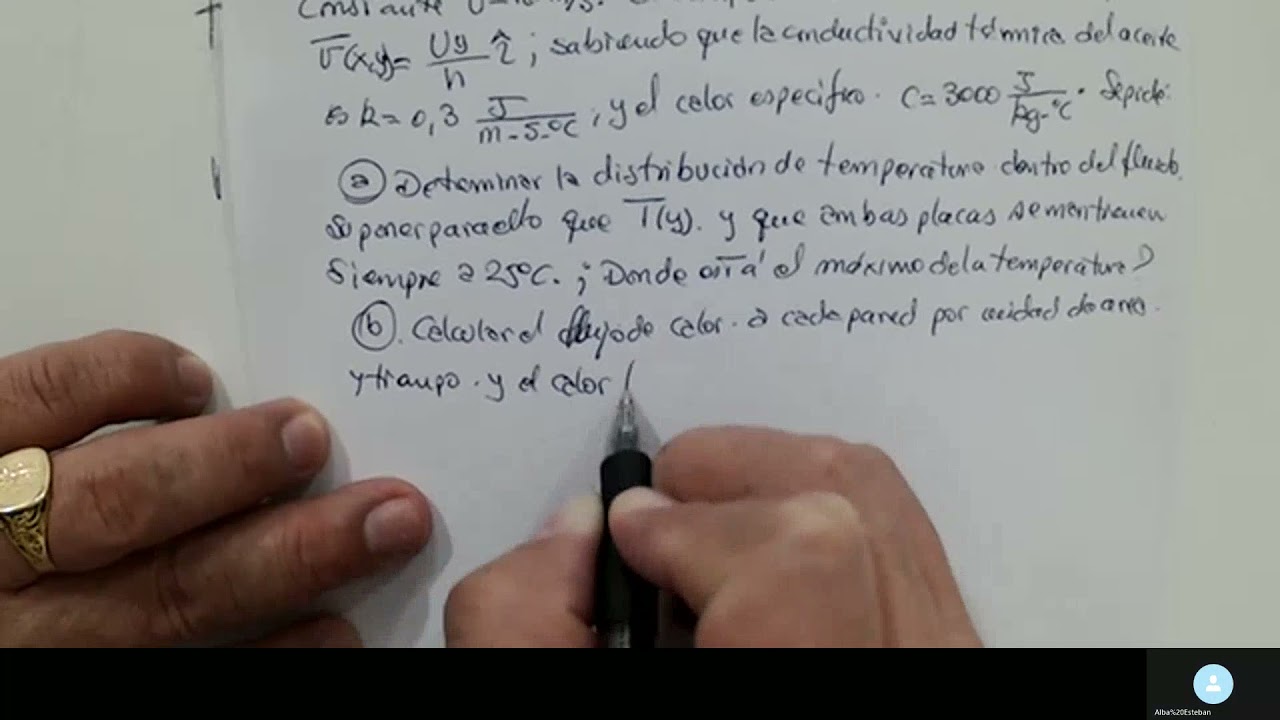 Constante U=10 m/s.
v̄(x,y)= Uy/h î ; sabiendo que la conductividad térmica del aceite
es k= 0,3 J/m-s-°C ; y el calor específico. C= 3000 J/kg-°C . Se pide:
(a) Determinar la distribución de temperatura dentro del fluido.
Suponer para ello que T(y). y que ambas placas se mantienen
siempre a 25°C. ¿Donde está el máximo de la temperatura?
(b). Calcular el flujo de calor. a cada pared por unidad de area.
y tiempo. y el calor
Alba%20Esteban